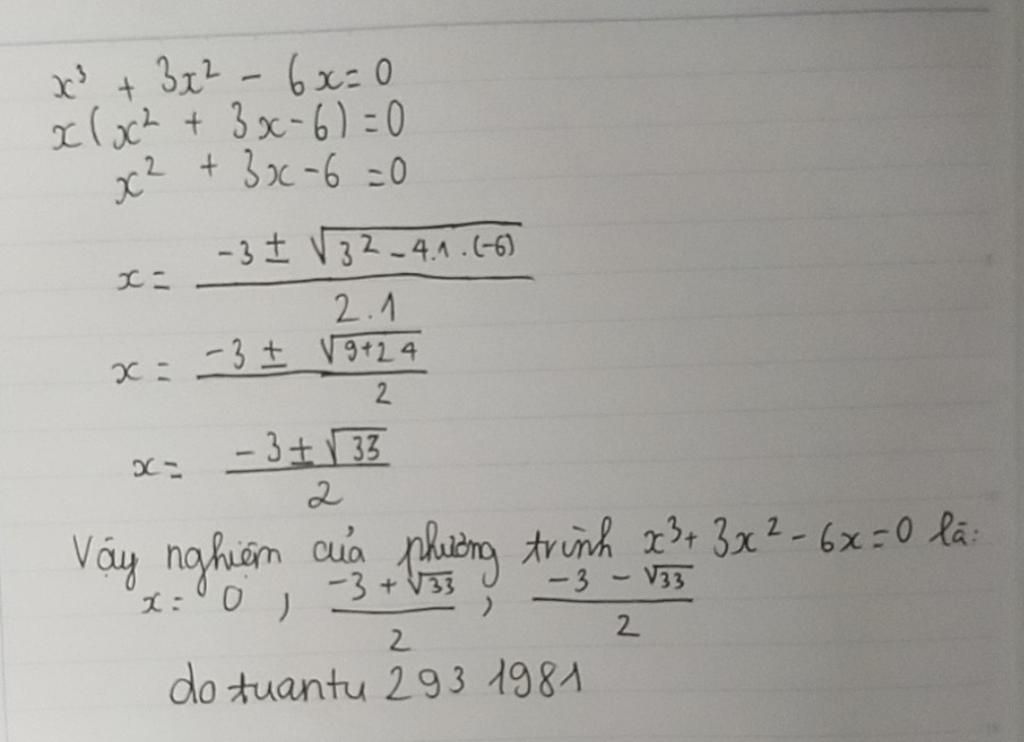 x³ + 3x² - 6x = 0
x(x² + 3x - 6) = 0
x² + 3x - 6 = 0
x = (-3 ± √(3² - 4.1.(-6))) / (2.1)
x = (-3 ± √(9+24)) / 2
x = (-3 ± √33) / 2
Vậy nghiệm của phương trình x³ + 3x² - 6x = 0 là:
x = 0, (-3 + √33) / 2, (-3 - √33) / 2
do tuantu 293 1981